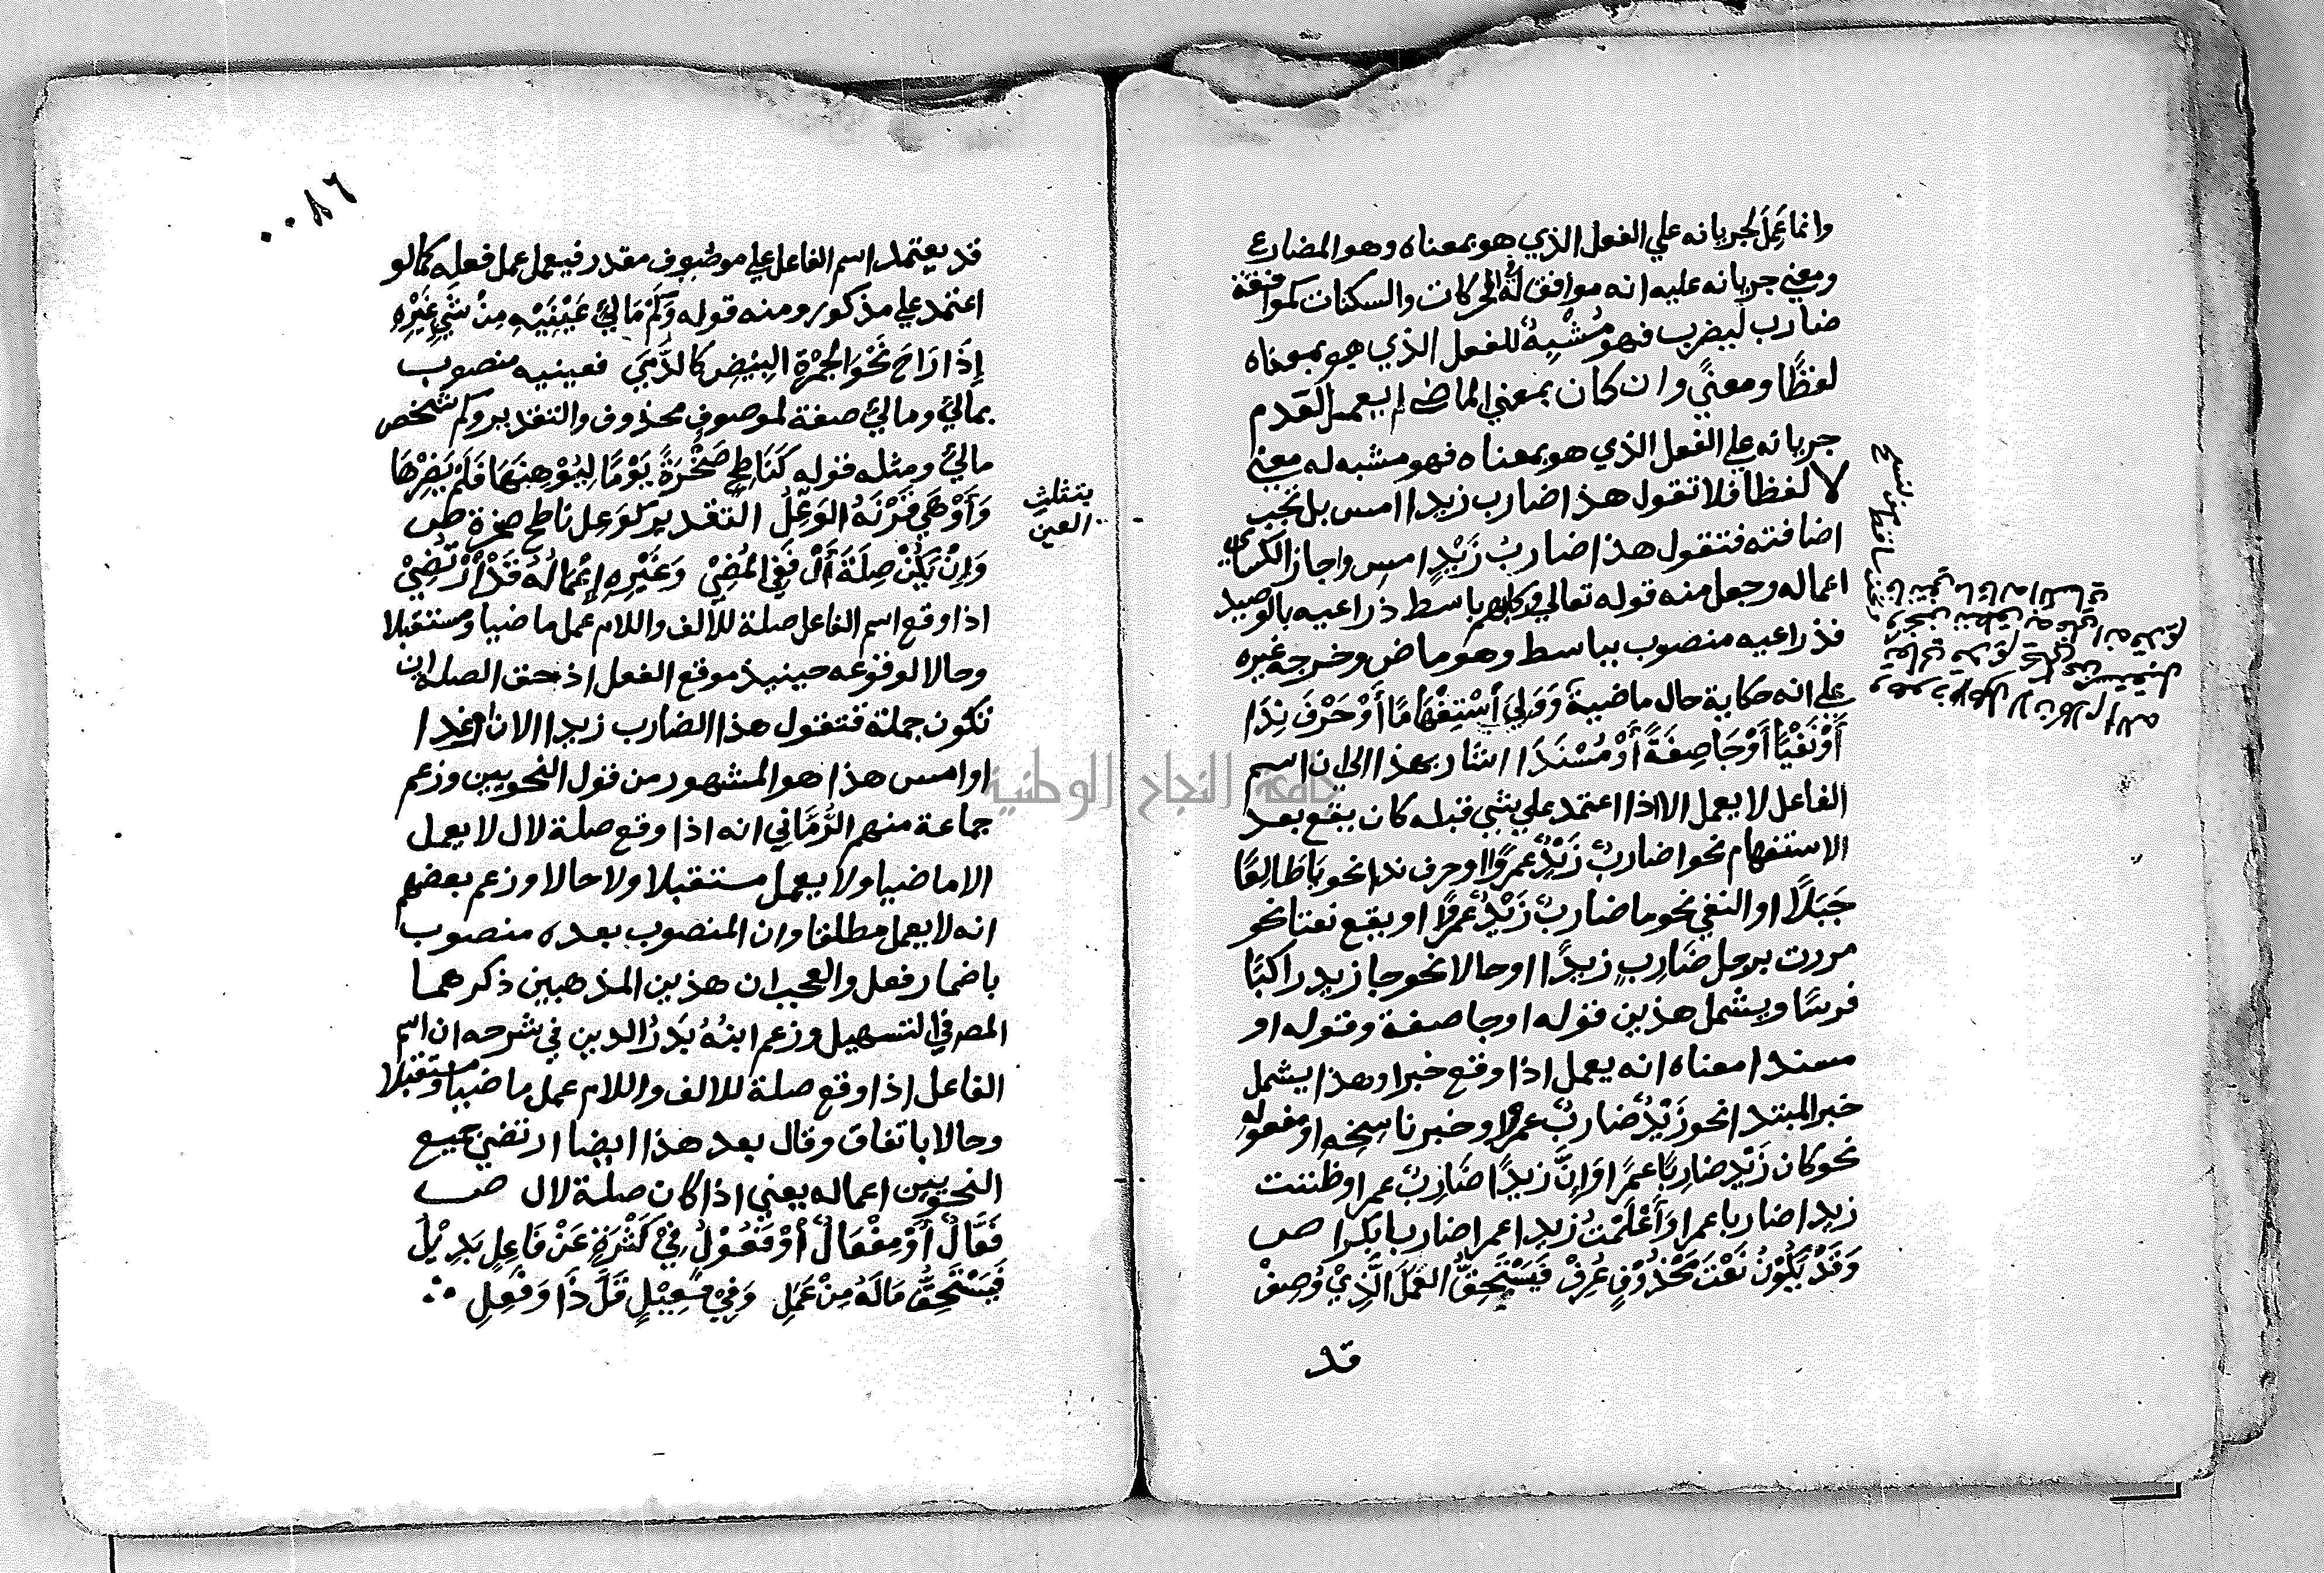 وانما عَمِلَ لجريانه علي الفعل الذي هو بمعناه وهو المضارع
ومعني جريانه عليه انه موافق لَهُ في الحركات والسكنات كموافقة
ضارب ليضرب فهو مُشْبِهٌ للفعل الذي هو بمعناه
لفظًا ومعنًي وان كان بمعني الماضي لم يعمل لعدم
جريانه علي الفعل الذي هو بمعناه فهو مشبه له معني
لا لفظا فلا تقول هذا ضارب زيدا امس بل تجب
اضافته فتقول هذا ضاربُ زَيْدٍ امسِ واجاز الكسائي
اعماله وجعل منه قوله تعالي وكلبهم باسط ذراعيه بالوصيد
فذراعيه منصوب بباسط وهو ماض وخرجه غيره
علي انه حكاية حال ماضية وَوَلِيَ اسْتِفْهَامًا أَوْ حَرْفَ نِدَا
أَوْ نَفْيًا أَوْ جَا صِفَةً أَوْ مُسْنَدَا اشار بهذا الي ان اسم
الفاعل لا يعمل الا اذا اعتمد علي شي قبله كان يقع بعد
الاستفهام نحو اضاربٌ زَيْدٌ عمروًا او حرف ندا نحو يا طَالِعًا
جَبَلًا او النفي نحو ما ضاربٌ زَيْدٌ عَمرًا او يقع نعتا نحو
مررت برجل ضَارِبٍ زيدًا او حالا نحو جا زيد راكبًا
فرسًا ويشمل هذين قوله او جا صفة وقوله او
مسندا معناه انه يعمل اذا وقع خبرا وهذا يشمل
خبر المبتدا نحو زَيْدٌ ضاربٌ عمرًا وخبر ناسخه او مفعوله
نحو كان زَيْد ضارِبًا عمرًا وَإِنَّ زيدًا ضَارِبٌ عمرا وظننت
زيدا ضاربا عمرا وَأَعْلَمْتُ زيدا عمرا ضاربا بكرا ص
وَقَدْ يَكُوْنُ نَعْتَ مَحْذُوْفٍ عُرِفْ فَيَسْتَحِقُّ العَمَلَ الَّذِيْ وُصِفْ
قد
٠٠٨٦
قد يعتمد اسم الفاعل علي موصوف مقدر فيعمل عمل فعله كما لو
اعتمد علي مذكور ومنه قوله وَكَمْ مَالِئٍ عَيْنَيْهِ مِنْ شَيِ غَيْرِهِ
إِذَا رَاحَ نَحْوَ الجَمْرَةِ البِيْضُ كالدُّمَي فعينيه منصوب
بمالئ ومالئ صفة لموصوف محذوف والتقدير وكم شخص
مالئ ومثله قوله كَنَاطِحٍ صَخْرَةً يَوْمًا لِيُوْهِنَهَا فَلَمْ يَضِرْهَا
وَأَوْهَي قَرْنَهُ الوَعِلُ التقدير كوعل ناطح صخرة ص
وَاِنْ يَكُنْ صِلَةَ أَلْ فَفِي المُضِيْ وَغَيْرِهِ إِعْمَالُهُ قَدْ ارْتُضِيْ
اذا وقع اسم الفاعل صلة للالف واللام عمل ماضيا ومستقبلا
وحالا لوقوعه حينيذ موقع الفعل اذ حق الصلة ان
تكون جملة فتقول هذا الضارب زيدا الان او غدا
او امس هذا هو المشهور من قول النحويين وزعم
جماعة منهم الرُّمَّاني انه اذا وقع صلة لال لا يعمل
الا ماضيا ولا يعمل مستقبلا ولا حالا وزعم بعضهم
انه لا يعمل مطلقا وان المنصوب بعده منصوب
باضمار فعل والعجب ان هذين المذهبين ذكرهما
المص في التسهيل وزعم ابنُهُ بَدرُ الدين في شرحه ان اسم
الفاعل اذا وقع صلة للالف واللام عمل ماضيا ومستقبلا
وحالا باتفاق وقال بعد هذا ايضا ارتضي جميع
النحويين اعماله يعني اذا كان صلة لال ص
فَعَّالٌ أَوْ مِفْعَالٌ أَوْ فَعُوْلُ فِيْ كَثْرَةٍ عَنْ فَاعِلٍ بَدِيْلُ
فَيَسْتَحِقُّ مَا لَهُ مِنْ عَمَلِ وَفِيْ فَعِيْلٍ قَلَّ ذَا وَفَعِلِ
بتثليث
العين
جامعة النجاح الوطنية